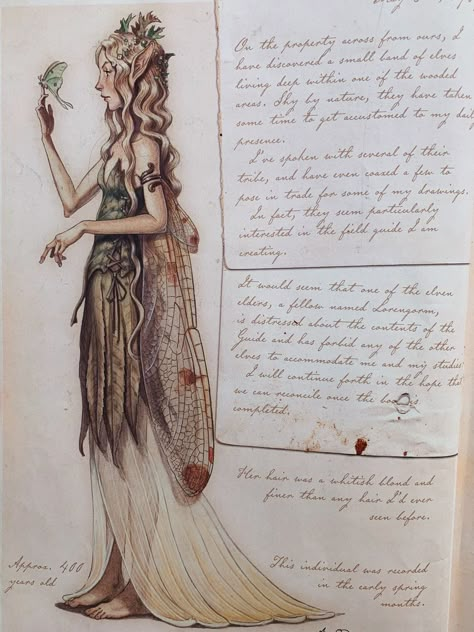 On the property across from ours, I
have discovered a small band of elves
living deep within one of the wooded
areas. Shy by nature, they have taken
some time to get accustomed to my dail
presence.
I've spoken with several of their
tribe, and have even coaxed a few to
pose in trade for some of my drawings.
In fact, they seem particularly
interested in the field guide I am
creating.
It would seem that one of the elven
elders, a fellow named Lorengorm,
is distressed about the contents of the
Guide and has forbid any of the other
elves to accommodate me and my studies
I will continue forth in the hope that
we can reconcile once the book is
completed.
Her hair was a whitish blond and
finer than any hair I'd ever
seen before.
Approx. 400
years old
This individual was recorded
in the early spring
months.